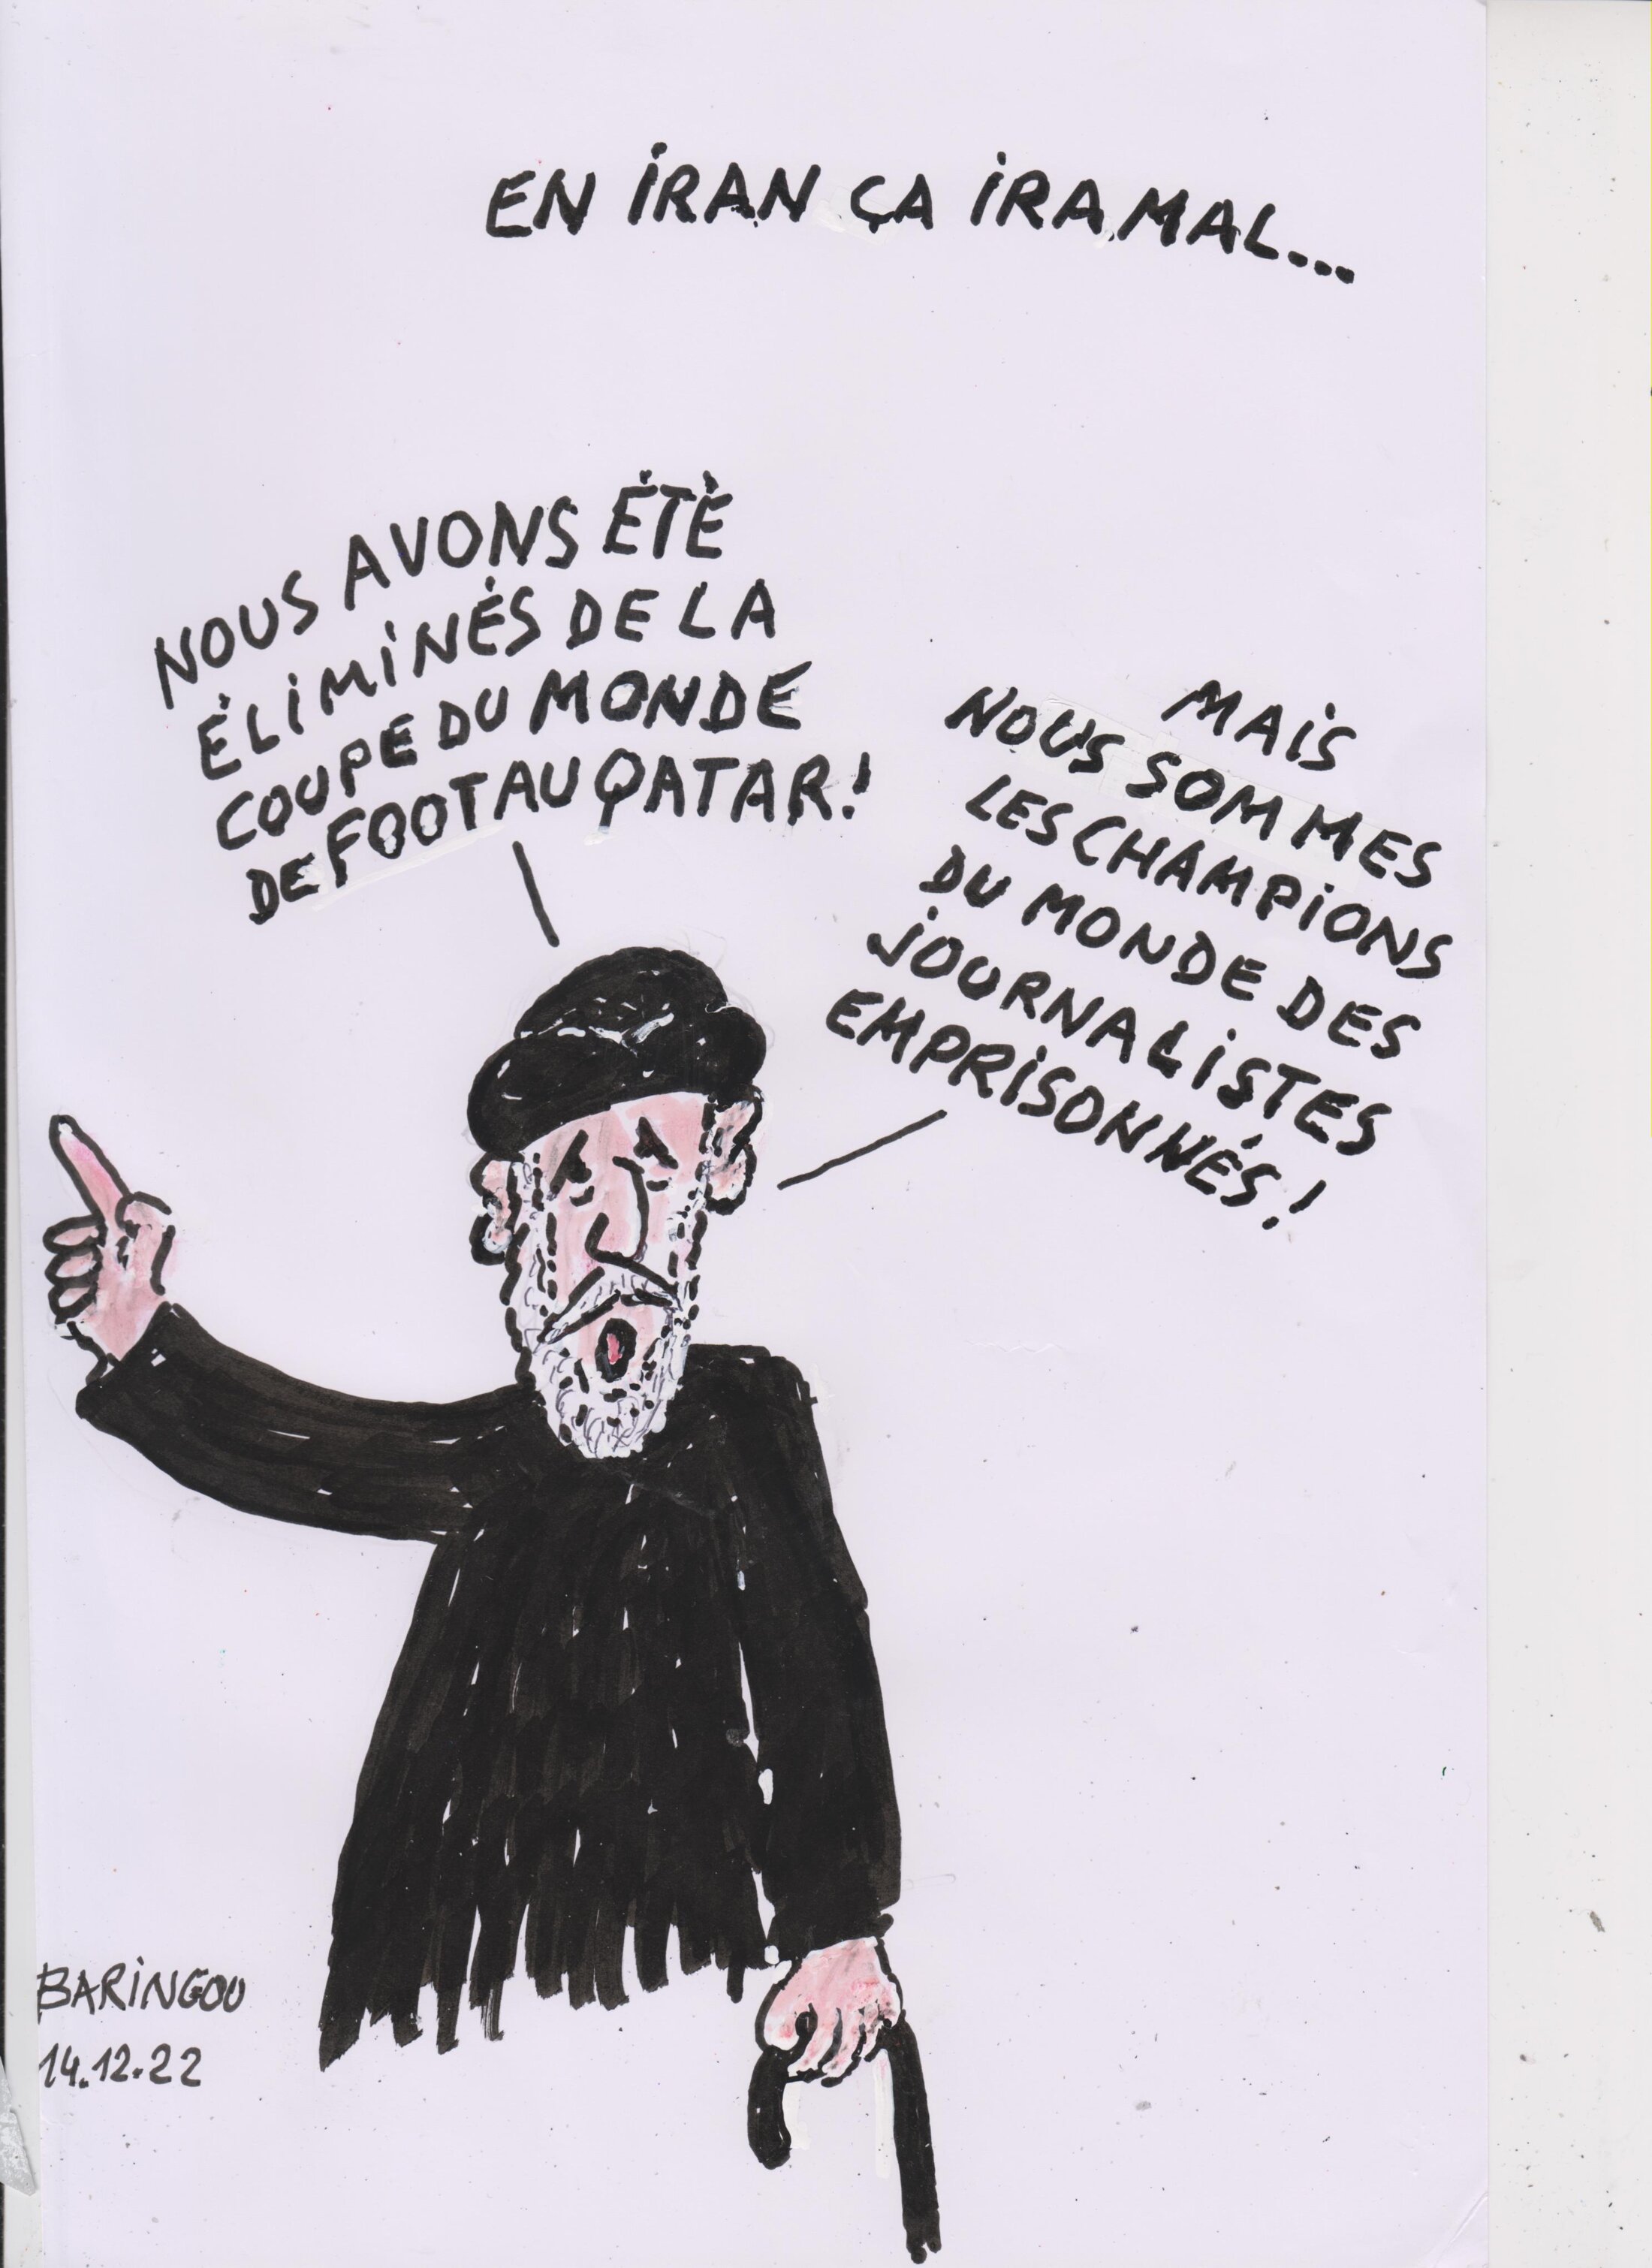 EN iRAN ÇA iRA MAL...
NOUS AVONS ÉTÈ
ÉLiMiNÉS DE LA
COUPE DU MONDE
DE FOOT AU QATAR!
MAiS
NOUS SOMMES
LES CHAMPiONS
DU MONDE DES
jOURNALiSTES
EMPRiSONNÉS!
BARiNGOU
14.12.22